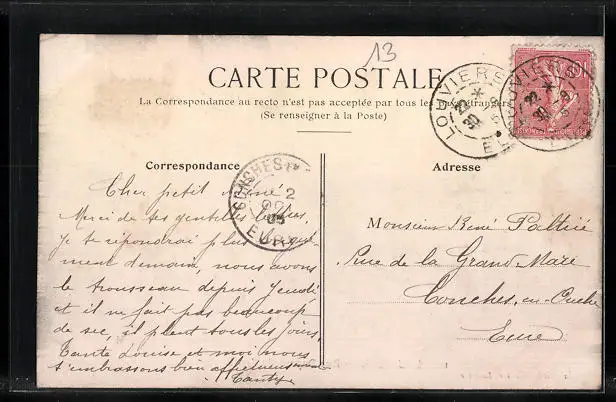 13
CARTE POSTALE
La Correspondance au recto n'est pas acceptée par tous les pays étrangers
(Se renseigner à la Poste)
LOUVIERS
EURE
Correspondance
Adresse
CONCHES
2
05
EURE
Cher petit René
Merci de ta gentille lettre,
Je te répondrai plus longuement
ment demain, nous avons
le trousseau depuis Jeudi
et il ne fait pas beaucoup
de sec, il pleut tous les jours,
Tante Louise et moi nous
t'embrassons bien affectueusement
Monsieur René
Rue de la Grand Mare
Conches-en-Ouche
Eure